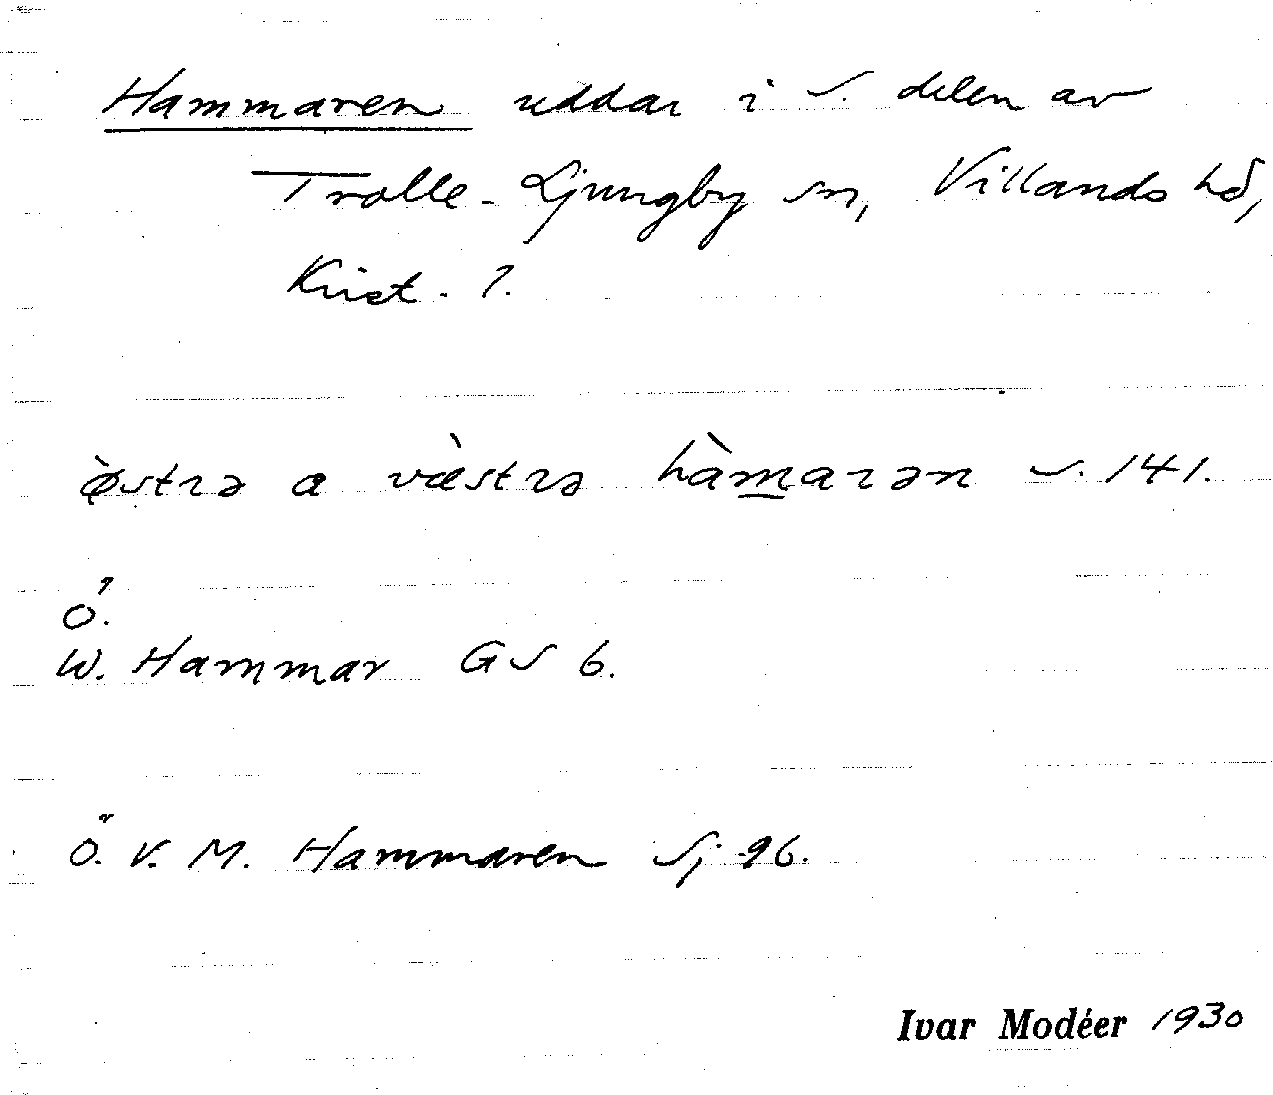 Hammaren uddar i S. delen av
Trolle-Ljungby sn, Villands hd,
Krist. l.
østrə a væstrə hàmarən s. 141.
Ö.
W. Hammar GS 6.
Ö. V. M. Hammaren Sj 96.
Ivar Modéer 1930